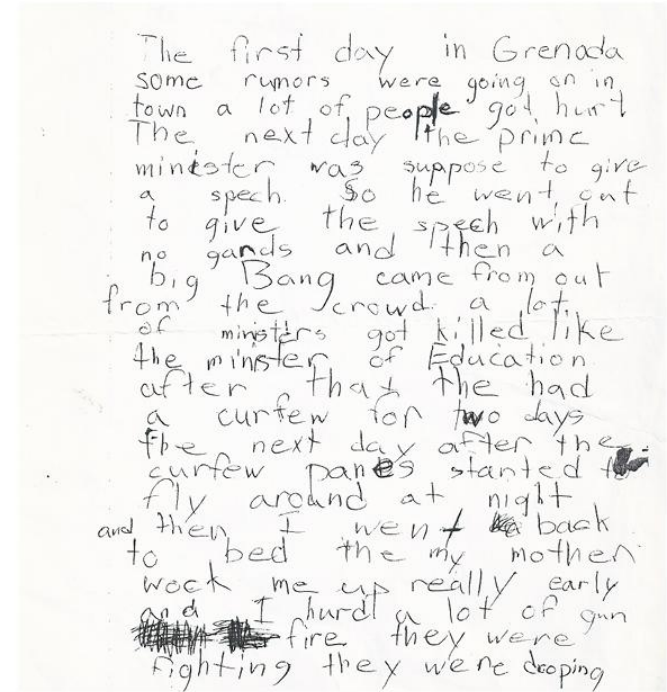 The first day in Grenada
some rumors were going on in
town a lot of people got hurt
The next day the prime
minister was suppose to give
a spech. So he went out
to give the spech with
no gards and then a
big Bang came from out
from the crowd. a lot
of ministers got killed like
the minister of Education
after that the had
a curfew for two days
the next day after the
curfew panes started to
fly around at night
and then I went back
to bed the my mother
wock me up really early
and I hurd a lot of gun
fire they were
fighting they were droping